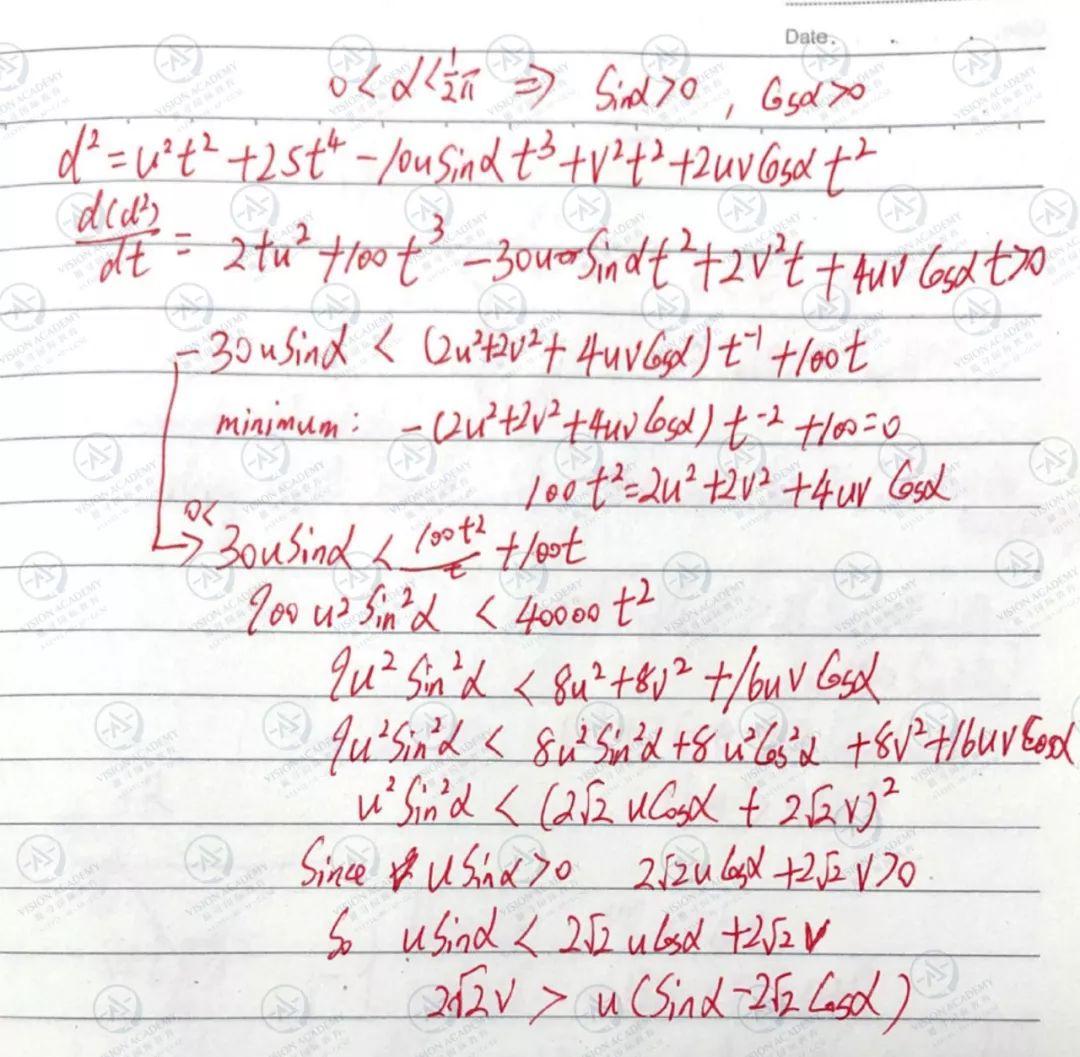 Date.
0<α<½π ⇒ Sinα>0 , Cosα>0
d²=u²t²+25t⁴-10uSinαt³+v²t²+2uvCosαt²
d(d²)/dt = 2tu²+100t³-30uSinαt²+2v²t+4uvCosαt>0
-30uSinα < (2u²+2v²+4uvCosα)t⁻¹+100t
minimum: -(2u²+2v²+4uvCosα)t⁻²+100=0
100t²=2u²+2v²+4uvCosα
0< 30uSinα < 100t²/t +100t
900u²Sin²α < 40000t²
9u²Sin²α < 8u²+8v²+16uvCosα
9u²Sin²α < 8u²Sin²α+8u²Cos²α+8v²+16uvCosα
u²Sin²α < (2√2uCosα+2√2v)²
Since uSinα>0 2√2uCosα+2√2v>0
So uSinα < 2√2uCosα+2√2v
2√2v > u(Sinα-2√2Cosα)
VISION ACADEMY